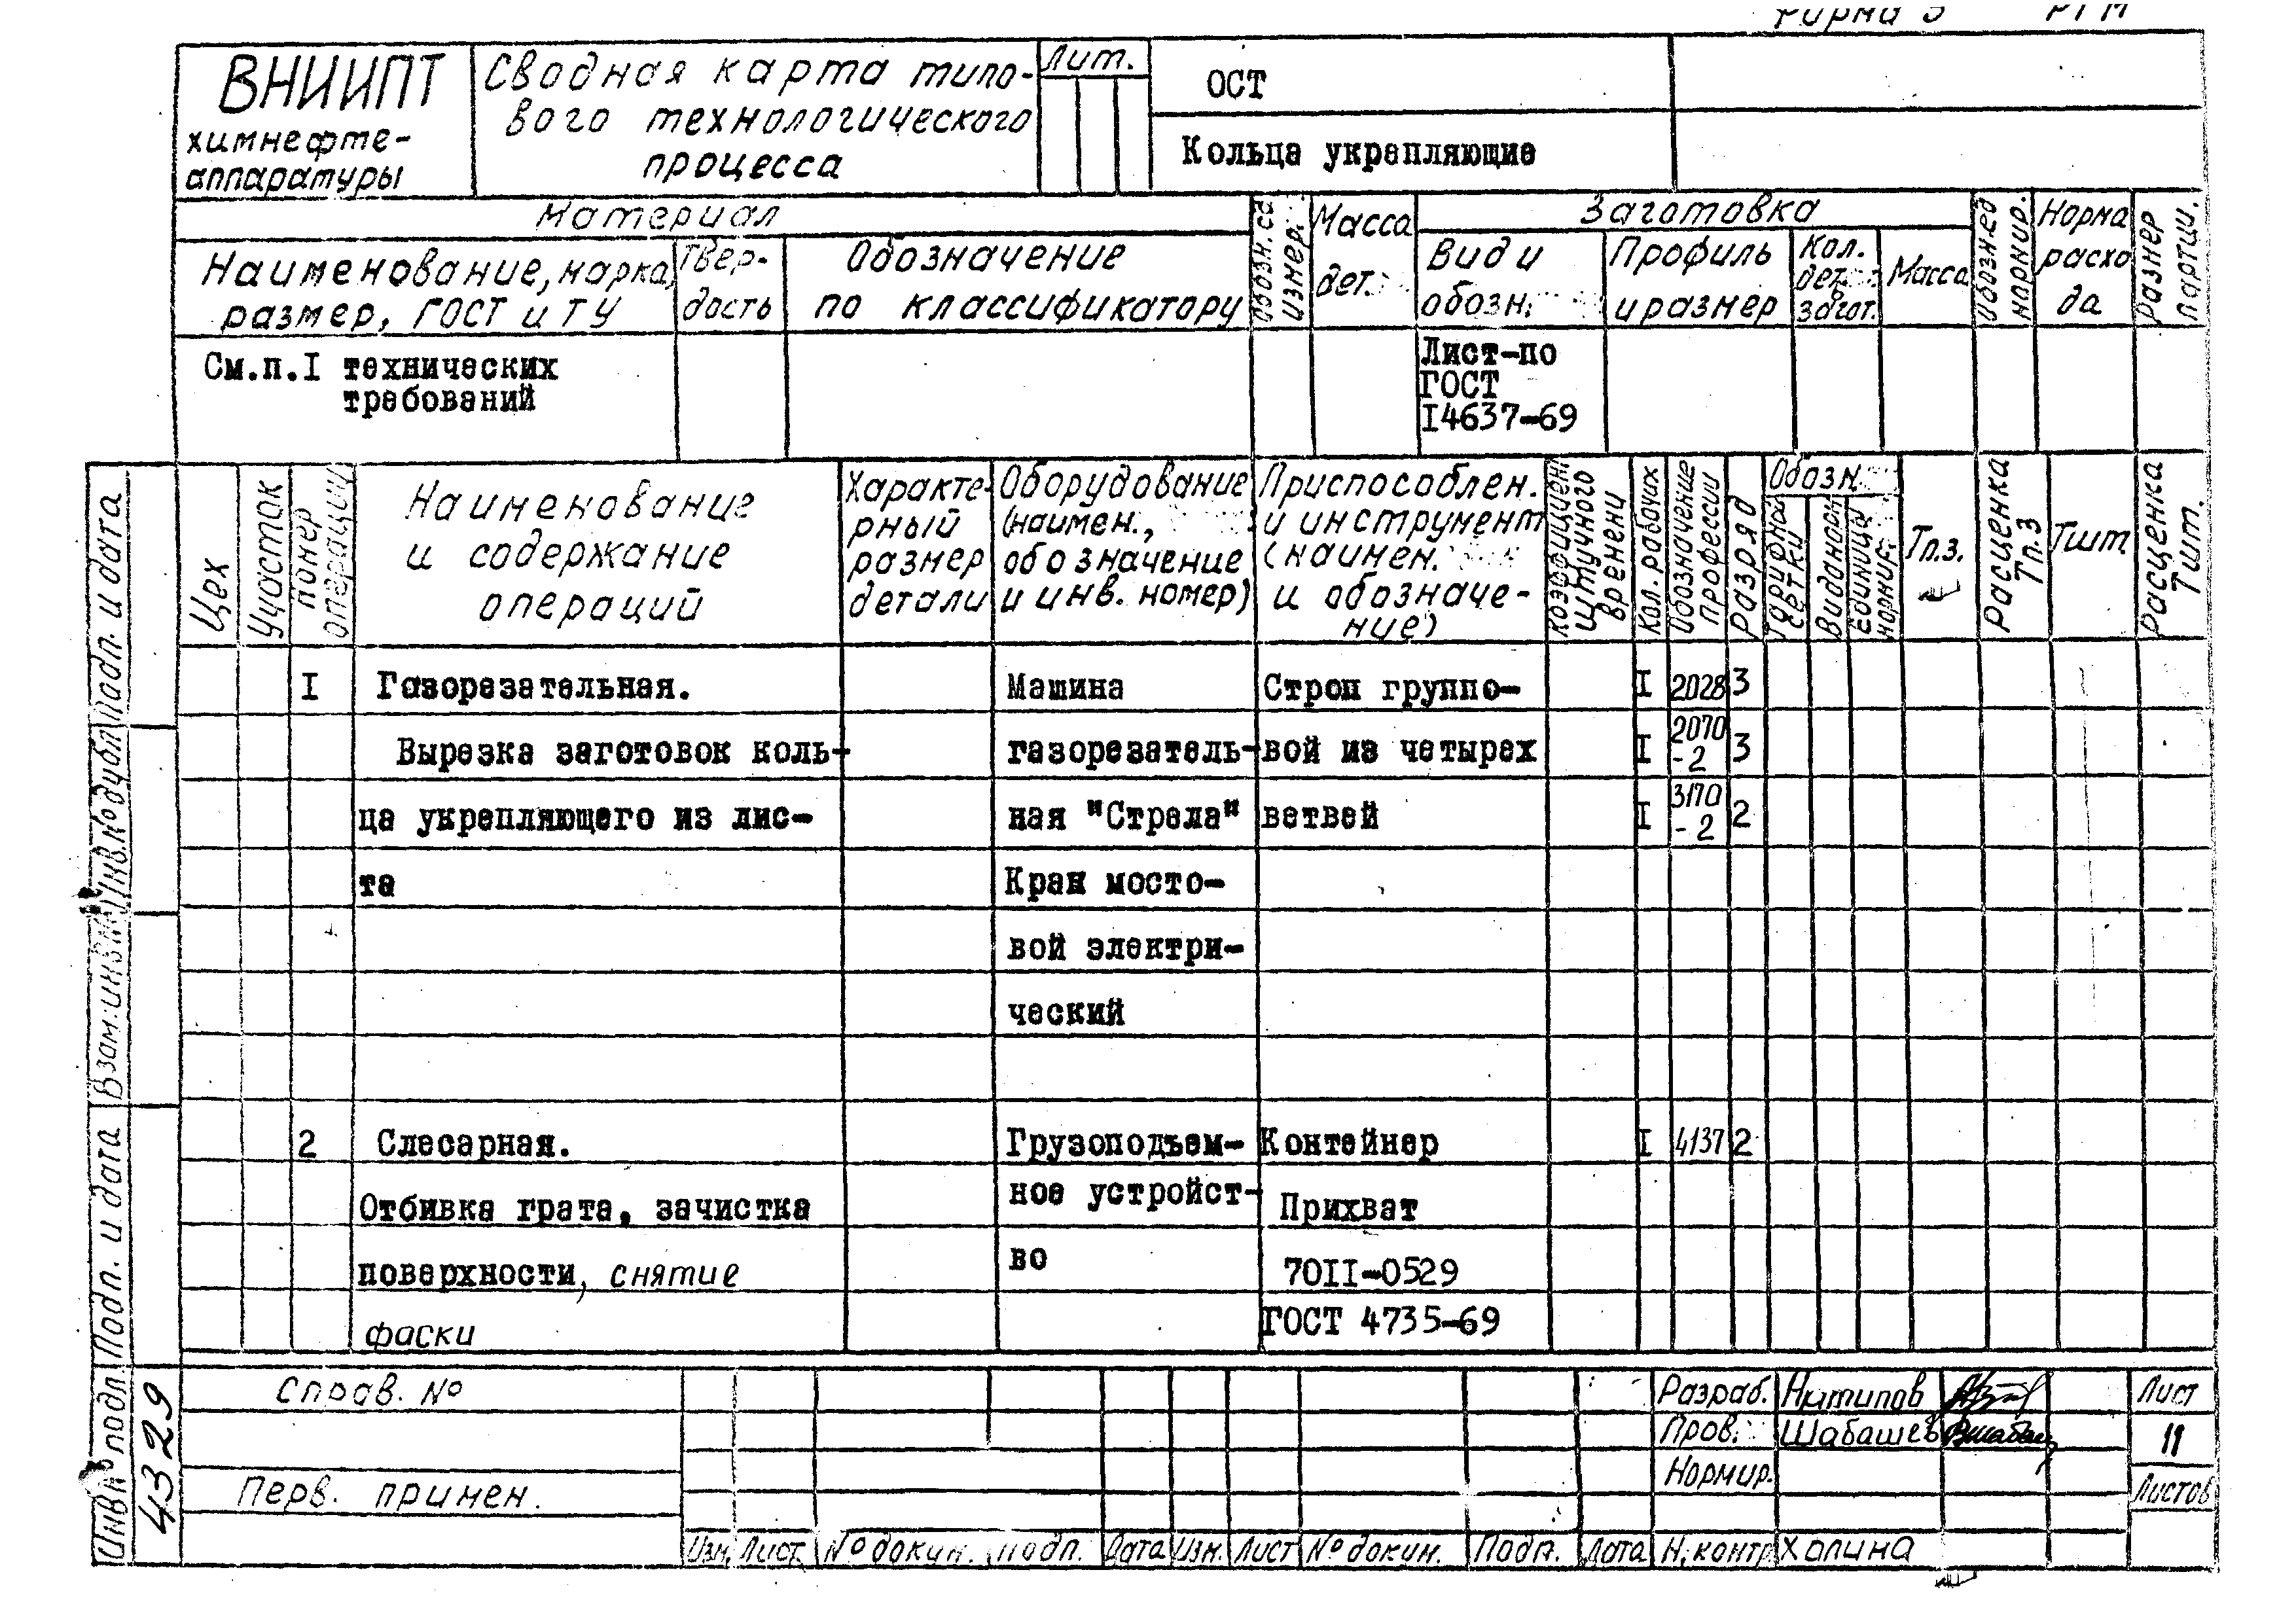 ВНИИПТ
химнефте-
аппаратуры
Сводная карта типо-
вого технологического
процесса
Лит.
ОСТ
Кольца укрепляющие
Материал
Наименование, марка,
размер, ГОСТ и ТУ
Твер-
дость
Обозначение
по классификатору
Обозн. ед.
измер.
Масса
дет.
Заготовка
Вид и
обозн.
Профиль
и размер
Кол.
дет. в
загот.
Масса
Обозн. ед
нормир.
Норма
расхо
да
Размер
партии.
См.п.I технических
требований
Лист-по
ГОСТ
I4637-69
Цех
Участок
Номер
операции
Наименование
и содержание
операций
Характе-
рный
размер
детали
Оборудование
(наимен.,
обозначение
и инв. номер)
Приспособлен.
и инструмент
(наимен.
и обозначе-
ние)
Коэффициент
штучного
времени
Кол. рабочих
Обозначение
профессии
Разряд
Обозн.
Тарифной
сетки
Вида норм
Единицы
нормир.
Тп.з.
Расценка
Тп.з
Тшт
Расценка
Тшт.
I Газорезательная. Машина Строп группо- I 2028 3
Вырезка заготовок коль- газорезатель- вой из четырех I 2070-2 3
ца укрепляющего из лис- ная "Стрела" ветвей I 3170-2 2
та Кран мосто-
вой электри-
ческий
2 Слесарная. Грузоподъем- Контейнер I 4137 2
Отбивка грата, зачистка ное устройст- Прихват
поверхности, снятие во 70II-0529
фаски ГОСТ 4735-69
Инв № подл. Подп. и дата Взам. инв № Инв. № дубл. Подп. и дата
4329
Справ. №
Перв. примен.
Изм. Лист № докум. Подп. Дата Изм. Лист № докум. Подп. Дата
Разраб. Антипов
Пров. Шабашев
Нормир.
Н. контр Халина
Лист
11
Листов